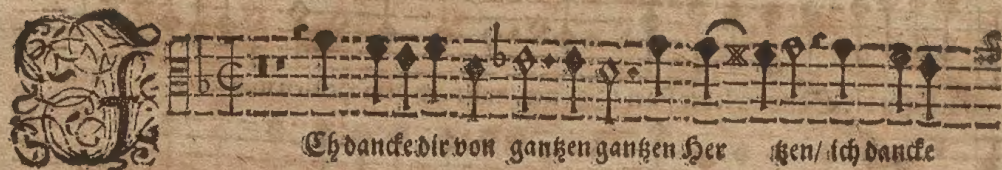 ICh dancke dir von gantzen gantzen Her tzen/ ich dancke